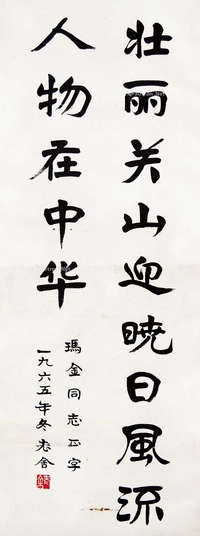 壮丽关山迎晓日風流
人物在中华
瑪金同志正字
一九六五年冬老舍